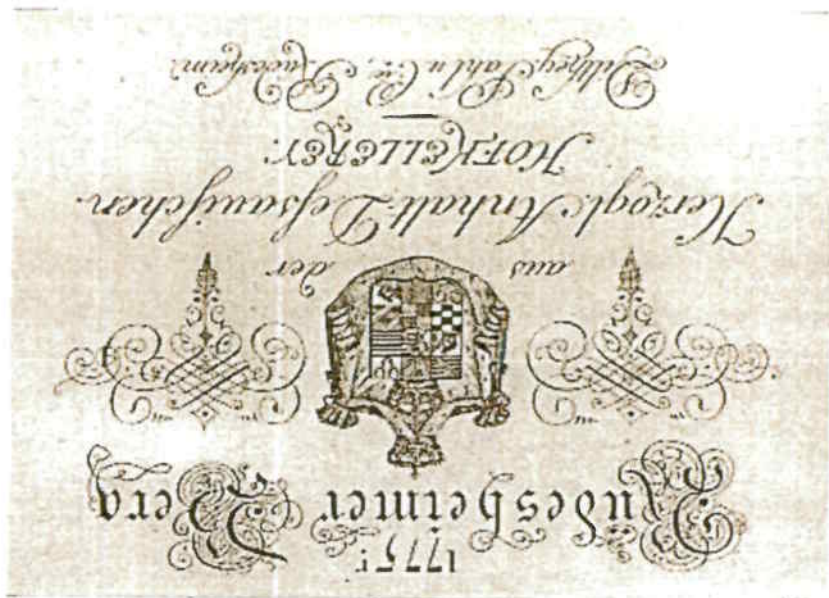 1775r
Rudesheimer Berg
aus der
Herzogl. Anhalt-Deßauischen
HOFKELLEREY.
Dilthey, Sahl u. Cie, Ruedesheim